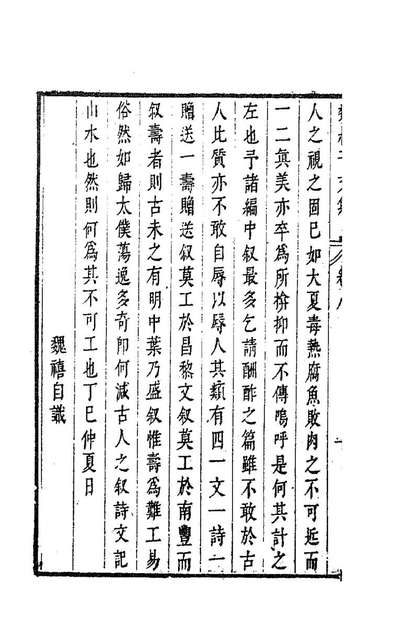 人之視之固已如大夏毒熱腐魚敗肉之不可近而
一二真美亦卒為所揜抑而不傳嗚呼是何其計之
左也予諸編中叙最多乞請酬酢之篇雖不敢於古
人比質亦不敢自辱以辱人其類有四一文一詩一
贈送一壽贈送叙莫工於昌黎文叙莫工於南豐而
叙壽者則古未之有明中葉乃盛叙惟壽為難工易
俗然如歸太僕蕩逸多奇即何減古人之叙詩文記
山水也然則何為其不可工也丁巳仲夏日
魏禧自識